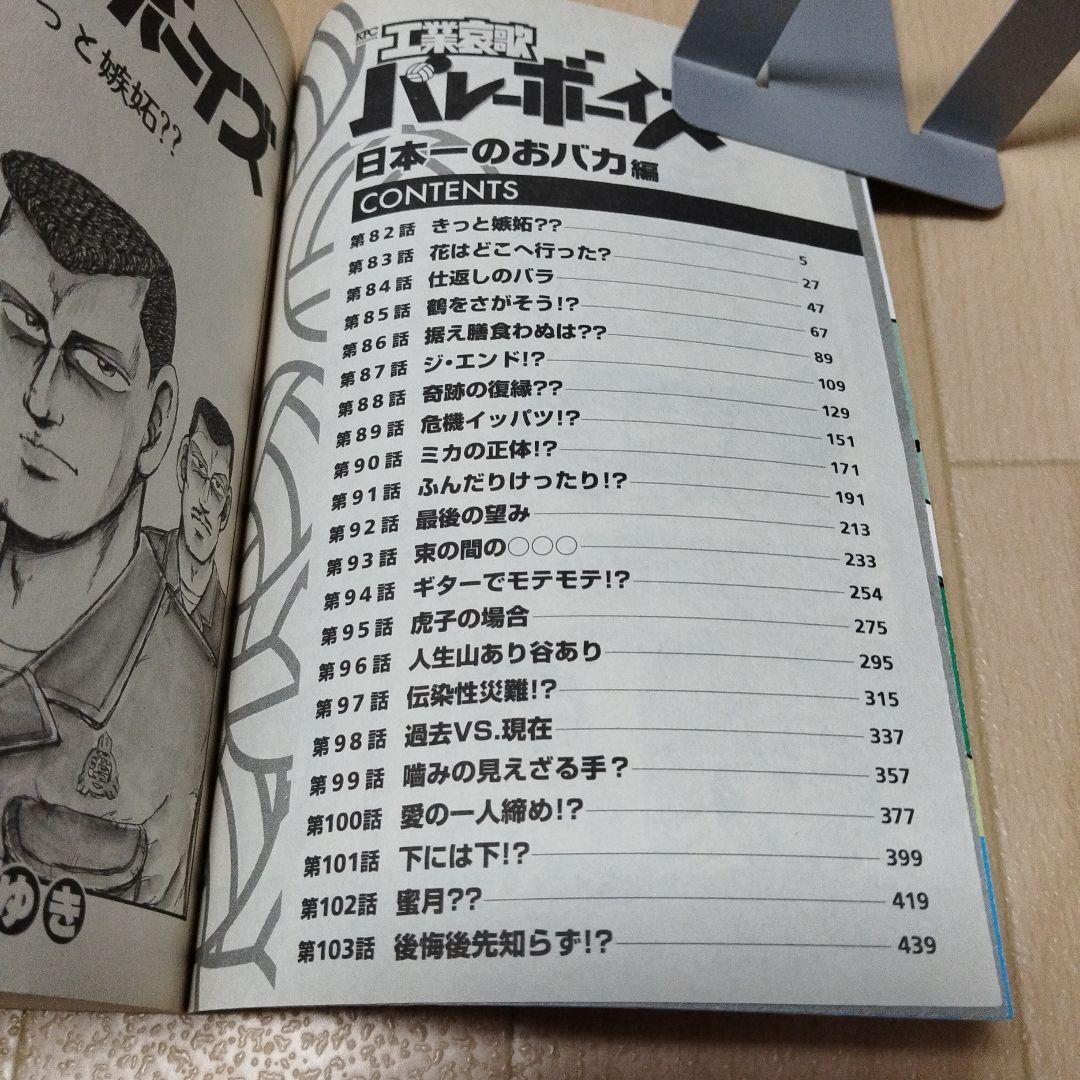 ボーイズ
っと嫉妬??
ゆき
KPC
工業哀歌
バレーボーイズ
日本一のおバカ編
CONTENTS
第82話 きっと嫉妬?? 5
第83話 花はどこへ行った? 27
第84話 仕返しのバラ 47
第85話 鶴をさがそう!? 67
第86話 据え膳食わぬは?? 89
第87話 ジ・エンド!? 109
第88話 奇跡の復縁?? 129
第89話 危機イッパツ!? 151
第90話 ミカの正体!? 171
第91話 ふんだりけったり!? 191
第92話 最後の望み 213
第93話 束の間の○○○ 233
第94話 ギターでモテモテ!? 254
第95話 虎子の場合 275
第96話 人生山あり谷あり 295
第97話 伝染性災難!? 315
第98話 過去VS.現在 337
第99話 噛みの見えざる手? 357
第100話 愛の一人締め!? 377
第101話 下には下!? 399
第102話 蜜月?? 419
第103話 後悔後先知らず!? 439